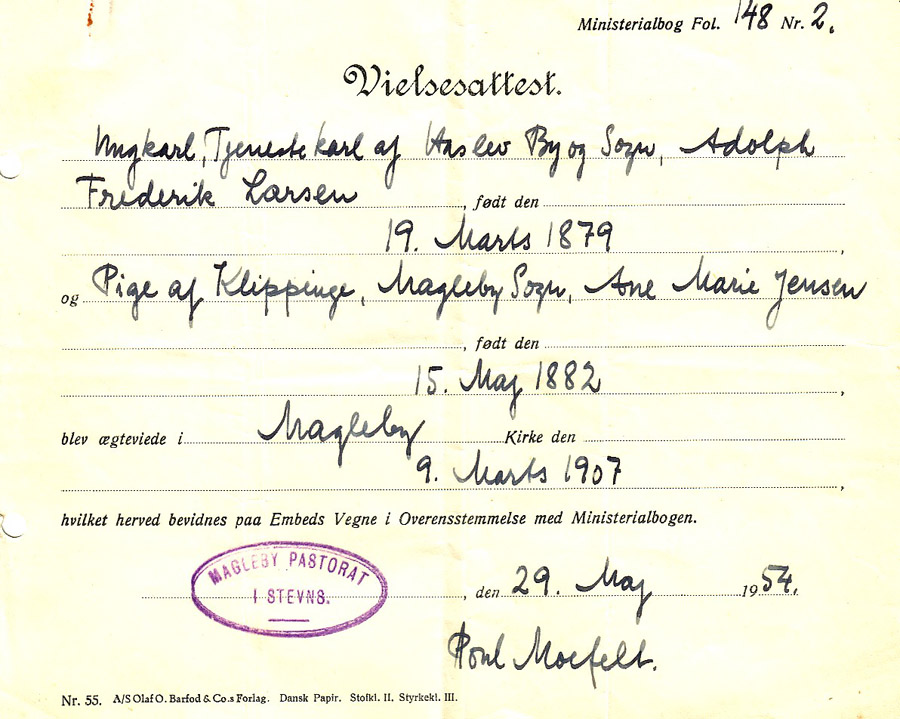 Ministerialbog Fol. 148 Nr. 2.
Vielsesattest.
Ungkarl, Tjenestekarl af Haslev By og Sogn, Adolph
Frederik Larsen, født den
19. Marts 1879,
og Pige af Klippinge, Magleby Sogn, Ane Marie Jensen
, født den
15. Maj 1882,
blev ægteviede i Magleby Kirke den
9. Marts 1907,
hvilket herved bevidnes paa Embeds Vegne i Overensstemmelse med Ministerialbogen.
MAGLEBY PASTORAT
I STEVNS.
, den 29. Maj 1954.
Poul Moefelt.
Nr. 55. A/S Olaf O. Barfod & Co.s Forlag. Dansk Papir. Stofkl. II. Styrkekl. III.